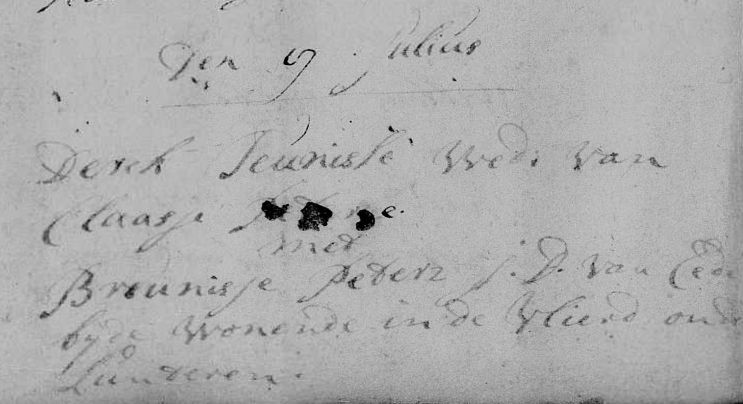 Den 9 Julius
Derck Teunisse Wedr van
Claasje
met
Breunisje Peters J. D. van Ede
byde wonende in de Vlierd onder
Lunteren.